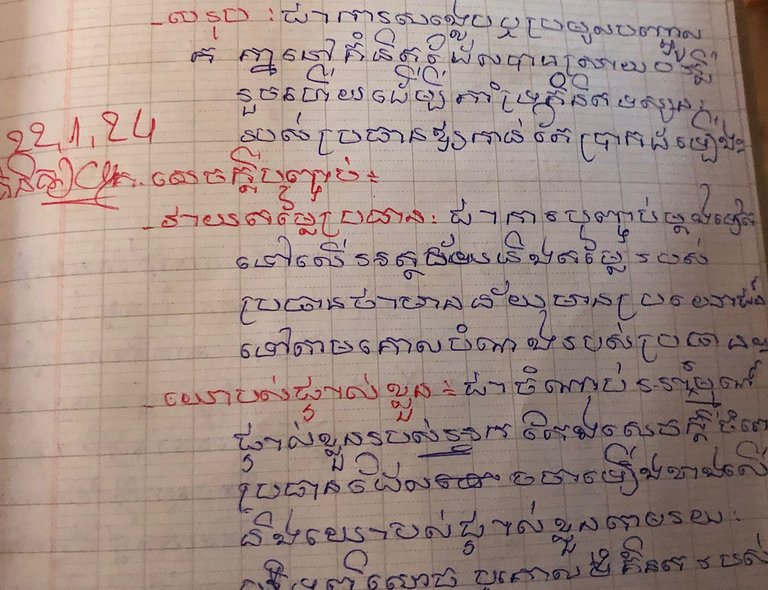 _ សរុប : ជាការសង្ខេបឬប្រមូលបញ្ចូល
គ្នានៅគំនិតដែលបានស្រាយបំភ្លឺ
រួចហើយដើម្បីគាំទ្រគំនិតទស្សនៈ
របស់ប្រធានឱ្យកាន់តែប្រាកដឡើង។
22,1,24
គ. សេចក្តីបញ្ចប់ ÷
_ វាយតម្លៃប្រធាន : ជាការបញ្ជាប់ម្តងទៀត
ទៅលើអត្ថន័យនិងតម្លៃរបស់
ប្រធានថាមានន័យមានប្រយោជន៍
ទៅតាមគោលបំណងរបស់ប្រធាន។
_ យោបល់ផ្ទាល់ខ្លួន ÷ ជាចំណាប់អារម្មណ៍
ផ្ទាល់ខ្លួនរបស់អ្នកតែងសេចក្តីចំពោះ
ប្រធានដែលបានចោទឡើងខាងលើ
និងយោបល់ផ្ទាល់ខ្លួនតាមរយៈ
គំនិតរបស់